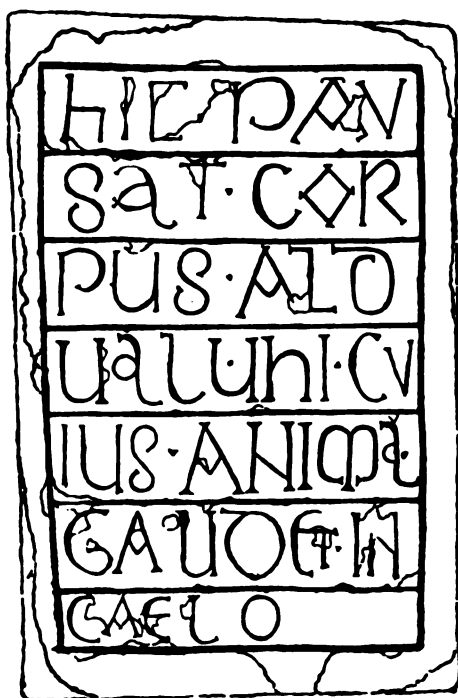 HIC PAV
SAT · COR
PUS · ALD
UALUHI · CV
IUS · ANIMA
GAUDET · IN
CAELO